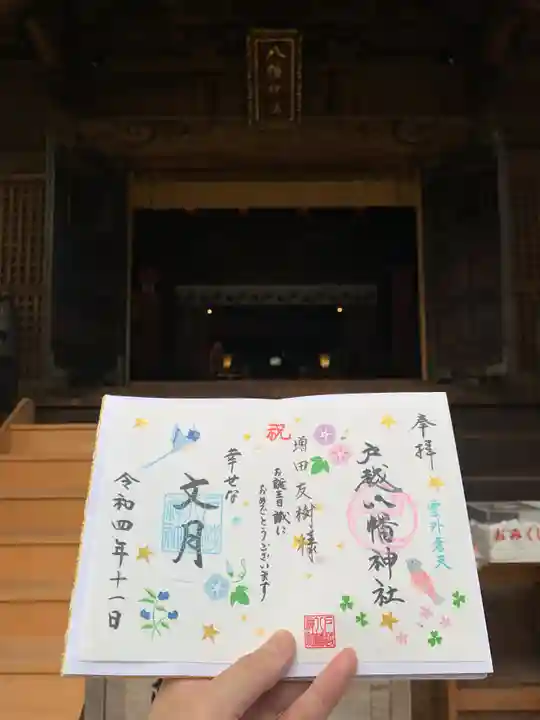 八幡神社
奉拝
雲外蒼天
戸越八幡神社
祝
増田友樹様
お誕生日誠に
おめでとうございます
幸せな
文月
令和四年十一日
おみく